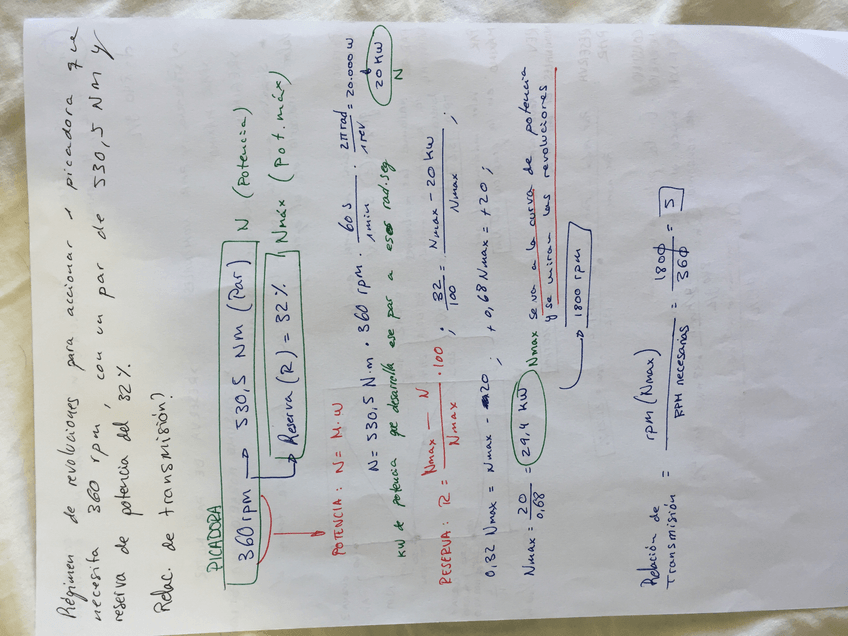 Régimen de revoluciones para accionar 1 picadora que
necesita 360 rpm, con un par de 530,5 NM y
reserva de potencia del 32%.
Relac. de transmisión?
PICADORA
360 rpm → 530,5 NM (Par) N (Potencia)
→ Reserva (R) = 32% Nmáx (Pot. máx)
POTENCIA: N = M·W
N = 530,5 N·m · 360 rpm · 60 s / 1 min · 2π rad / 1 rev = 20.000 W
20 KW
N
KW de potencia que desarrolla ese par a esos rad.seg
RESERVA: R = Nmax - N / Nmax · 100 ; 32 / 100 = Nmax - 20 KW / Nmax ;
0,32 Nmax = Nmax - 20 ; +0,68 Nmax = +20 ;
Nmax = 20 / 0,68 = 29,4 KW Nmax se va a la curva de potencia
y se miran las revoluciones
→ 1800 rpm
Relación de Transmisión = rpm (Nmax) / RPM necesarias = 1800 / 360 = 5